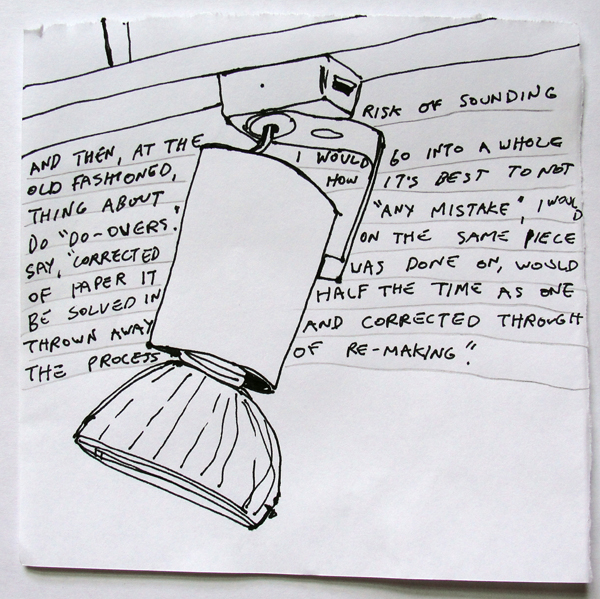 AND THEN, AT THE RISK OF SOUNDING
OLD FASHIONED, I WOULD GO INTO A WHOLE
THING ABOUT HOW IT'S BEST TO NOT
DO "DO-OVERS." "ANY MISTAKE", I WOULD
SAY, "CORRECTED ON THE SAME PIECE
OF PAPER IT WAS DONE ON, WOULD
BE SOLVED IN HALF THE TIME AS ONE
THROWN AWAY AND CORRECTED THROUGH
THE PROCESS OF RE-MAKING."